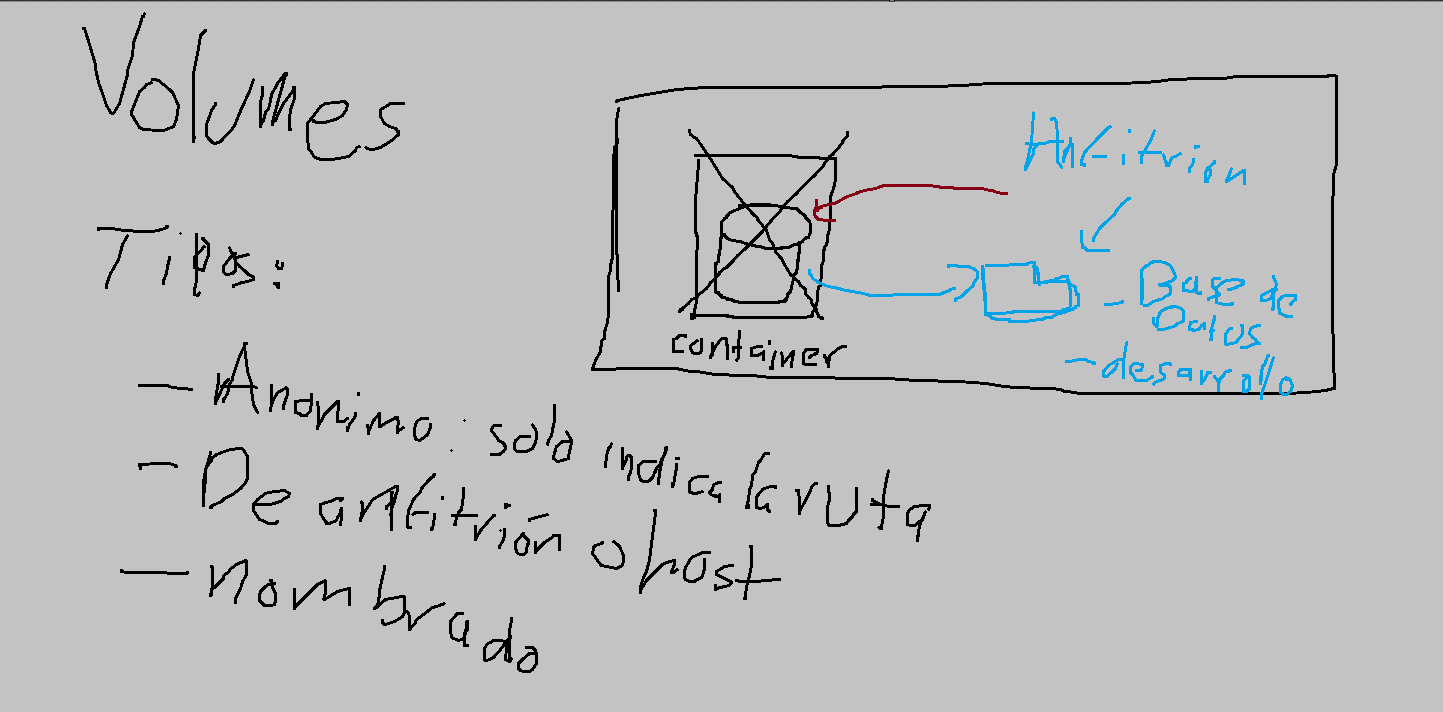 Volumes
Tipos:
- Anonimo: solo indica la ruta
- De anfitrión o host
- nombrado
container
Anfitrion
- Base de
Datos
- desarrollo